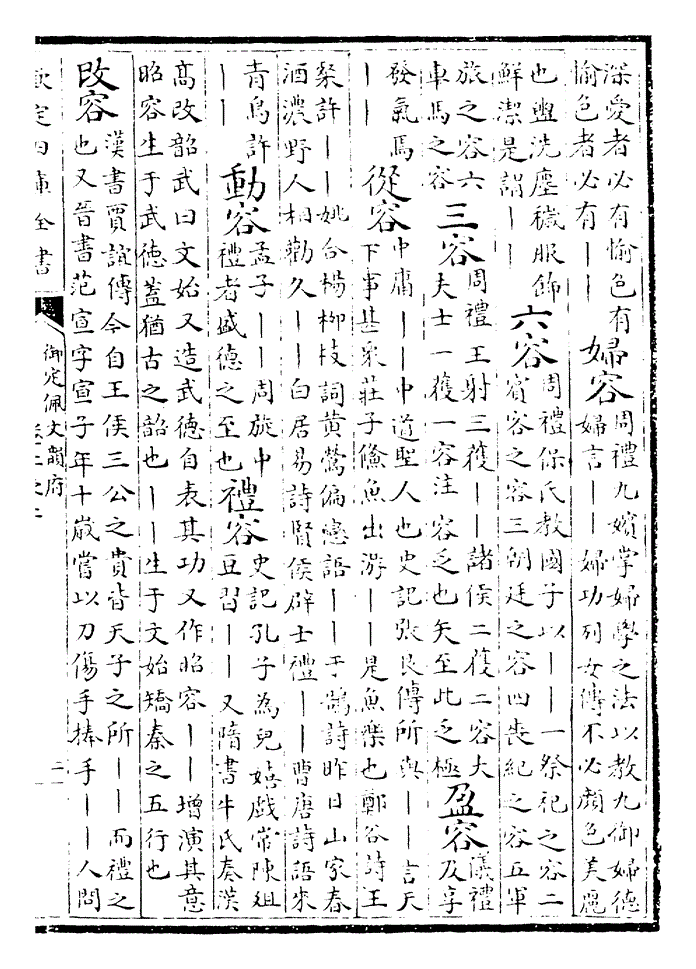 深愛者必有愉色有
愉色者必有——
婦容
周禮九嬪掌婦學之法以教九御婦德
婦言——婦功列女傳不必顏色美麗
也盥浣塵穢服飾
鮮潔是謂——
六容
周禮保氏教國子以——一祭祀之容二
賓客之容三朝廷之容四喪紀之容五軍
旅之容六
車馬之容
三容
周禮王射三獲——諸侯二獲二容大
夫士一獲一容注 容乏也矢至此乏極
盈容
儀禮
及享
發氣焉
——
從容
中庸——中道聖人也史記張良傳所與——言天
下事甚衆莊子鯈魚出游——是魚樂也鄭谷詩王
粲許——姚合楊柳枝詞黃鶯偏戀語——于鵠詩昨日山家春
酒濃野人相勸久——白居易詩賢侯辟士禮——曹唐詩語來
青鳥許
——
動容
孟子——周旋中
禮者盛德之至也
禮容
史記孔子為兒嬉戲常陳俎
豆習——又隋書牛氏奏漢
高改韶武曰文始又造武德自表其功又作昭容——增演其意
昭容生于武德葢猶古之韶也——生于文始矯秦之五行也
改容
漢書賈誼傳今自王侯三公之貴皆天子之所——而禮之
也又晉書范宣字宣子年十歲嘗以刀傷手捧手——人問
欽定四庫全書
御定佩文韻府
卷二之二